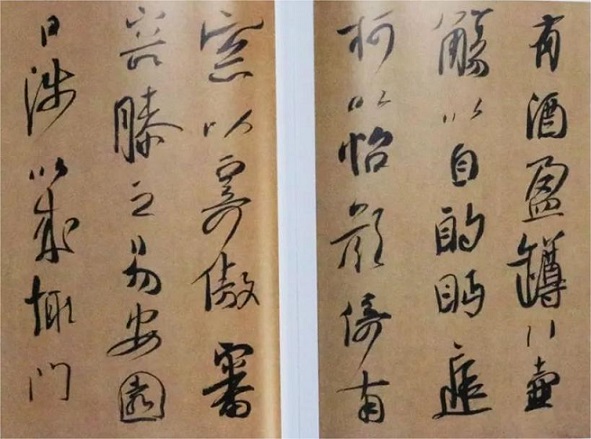 有酒盈罇引壺
觴以自酌眄庭
柯以怡顏倚南
窓以寄傲審
容膝之易安園
日涉以成趣門